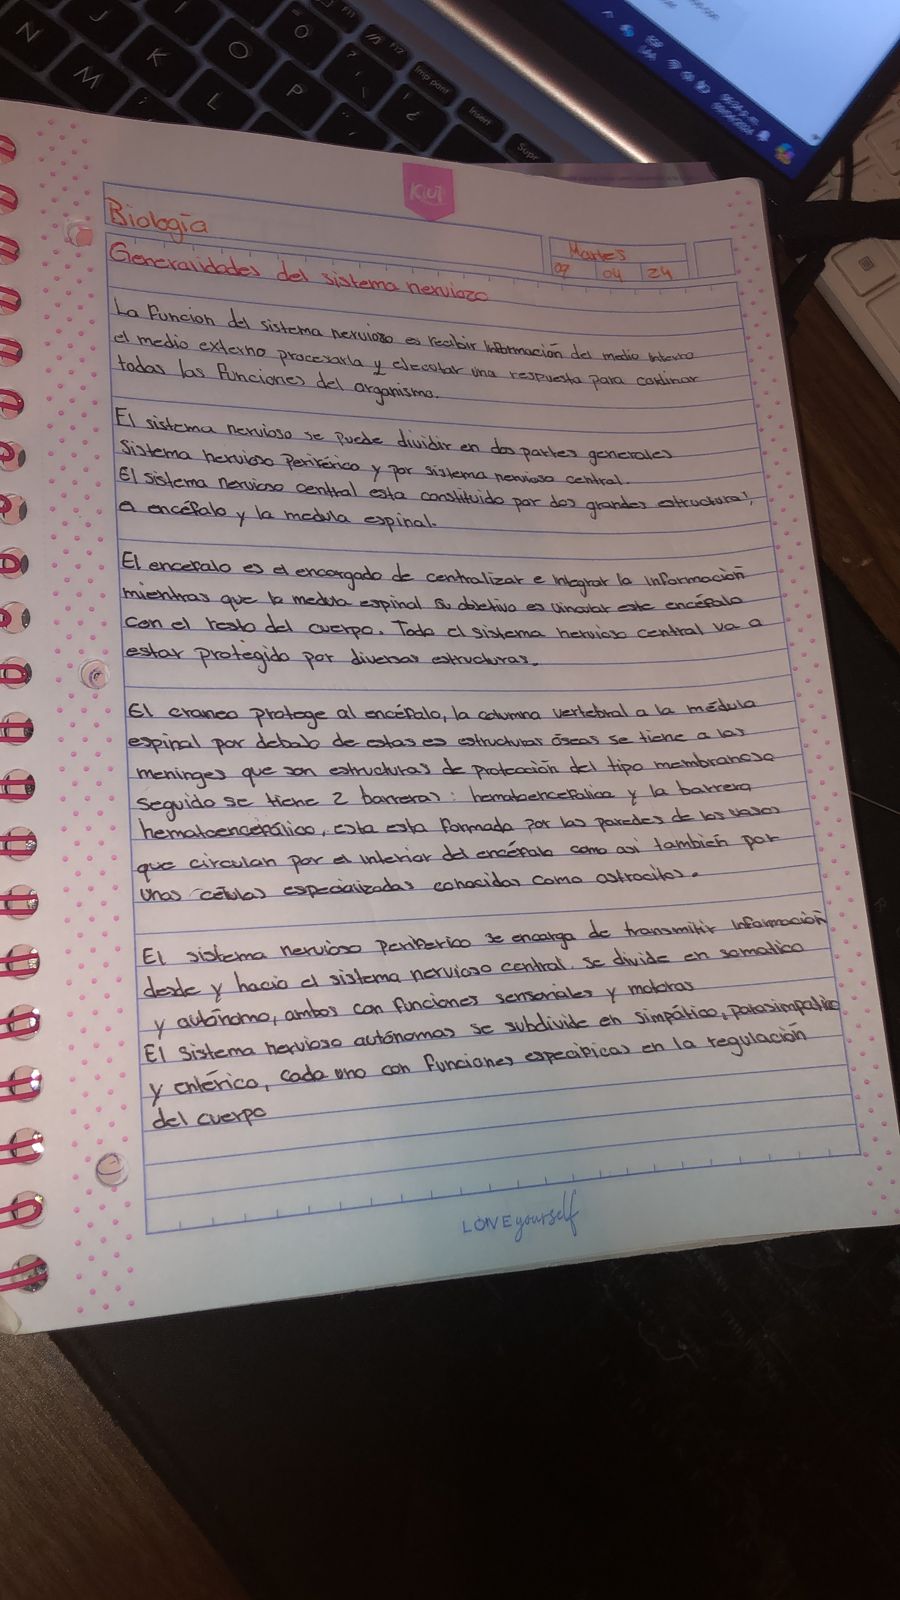 KIUT
Biología
Martes
09 04 24
Generalidades del sistema nervioso
La función del sistema nervioso es recibir información del medio interno
el medio externo procesarla y ejecutar una respuesta para cordinar
todas las funciones del organismo.
El sistema nervioso se puede dividir en dos partes generales
Sistema nervioso periférico y por sistema nervioso central.
El sistema nervioso central esta constituido por dos grandes estructuras,
a encéfalo y la medula espinal.
El encefalo es el encargado de centralizar e integrar la información
mientras que la medula espinal su objetivo es vincular este encéfalo
con el resto del cuerpo. Todo el sistema nervioso central va a
estar protegido por diversas estructuras.
El craneo protege al encéfalo, la columna vertebral a la médula
espinal por debajo de estas es estructuras óseas se tiene a las
meninges que son estructuras de protección del tipo membranoso
seguido se tiene 2 barreras: hematoencefalica y la barrera
hematoencefálico, esta esta formada por las paredes de los vasos
que circulan por el interior del encéfalo como asi también por
unas células especializadas conocidas como astrocitos.
El sistema nervioso periferico se encarga de transmitir información
desde y hacia el sistema nervioso central. se divide en somatico
y autónomo, ambos con funciones sensoriales y motoras
El sistema nervioso autónomas se subdivide en simpático, parasimpatico
y entérico, cada uno con funciones especificas en la regulación
del cuerpo
LOVE yourself
N
M
K
J
I
O
L
P
Ö
F11
F12
Imp pant
Insert
Supr